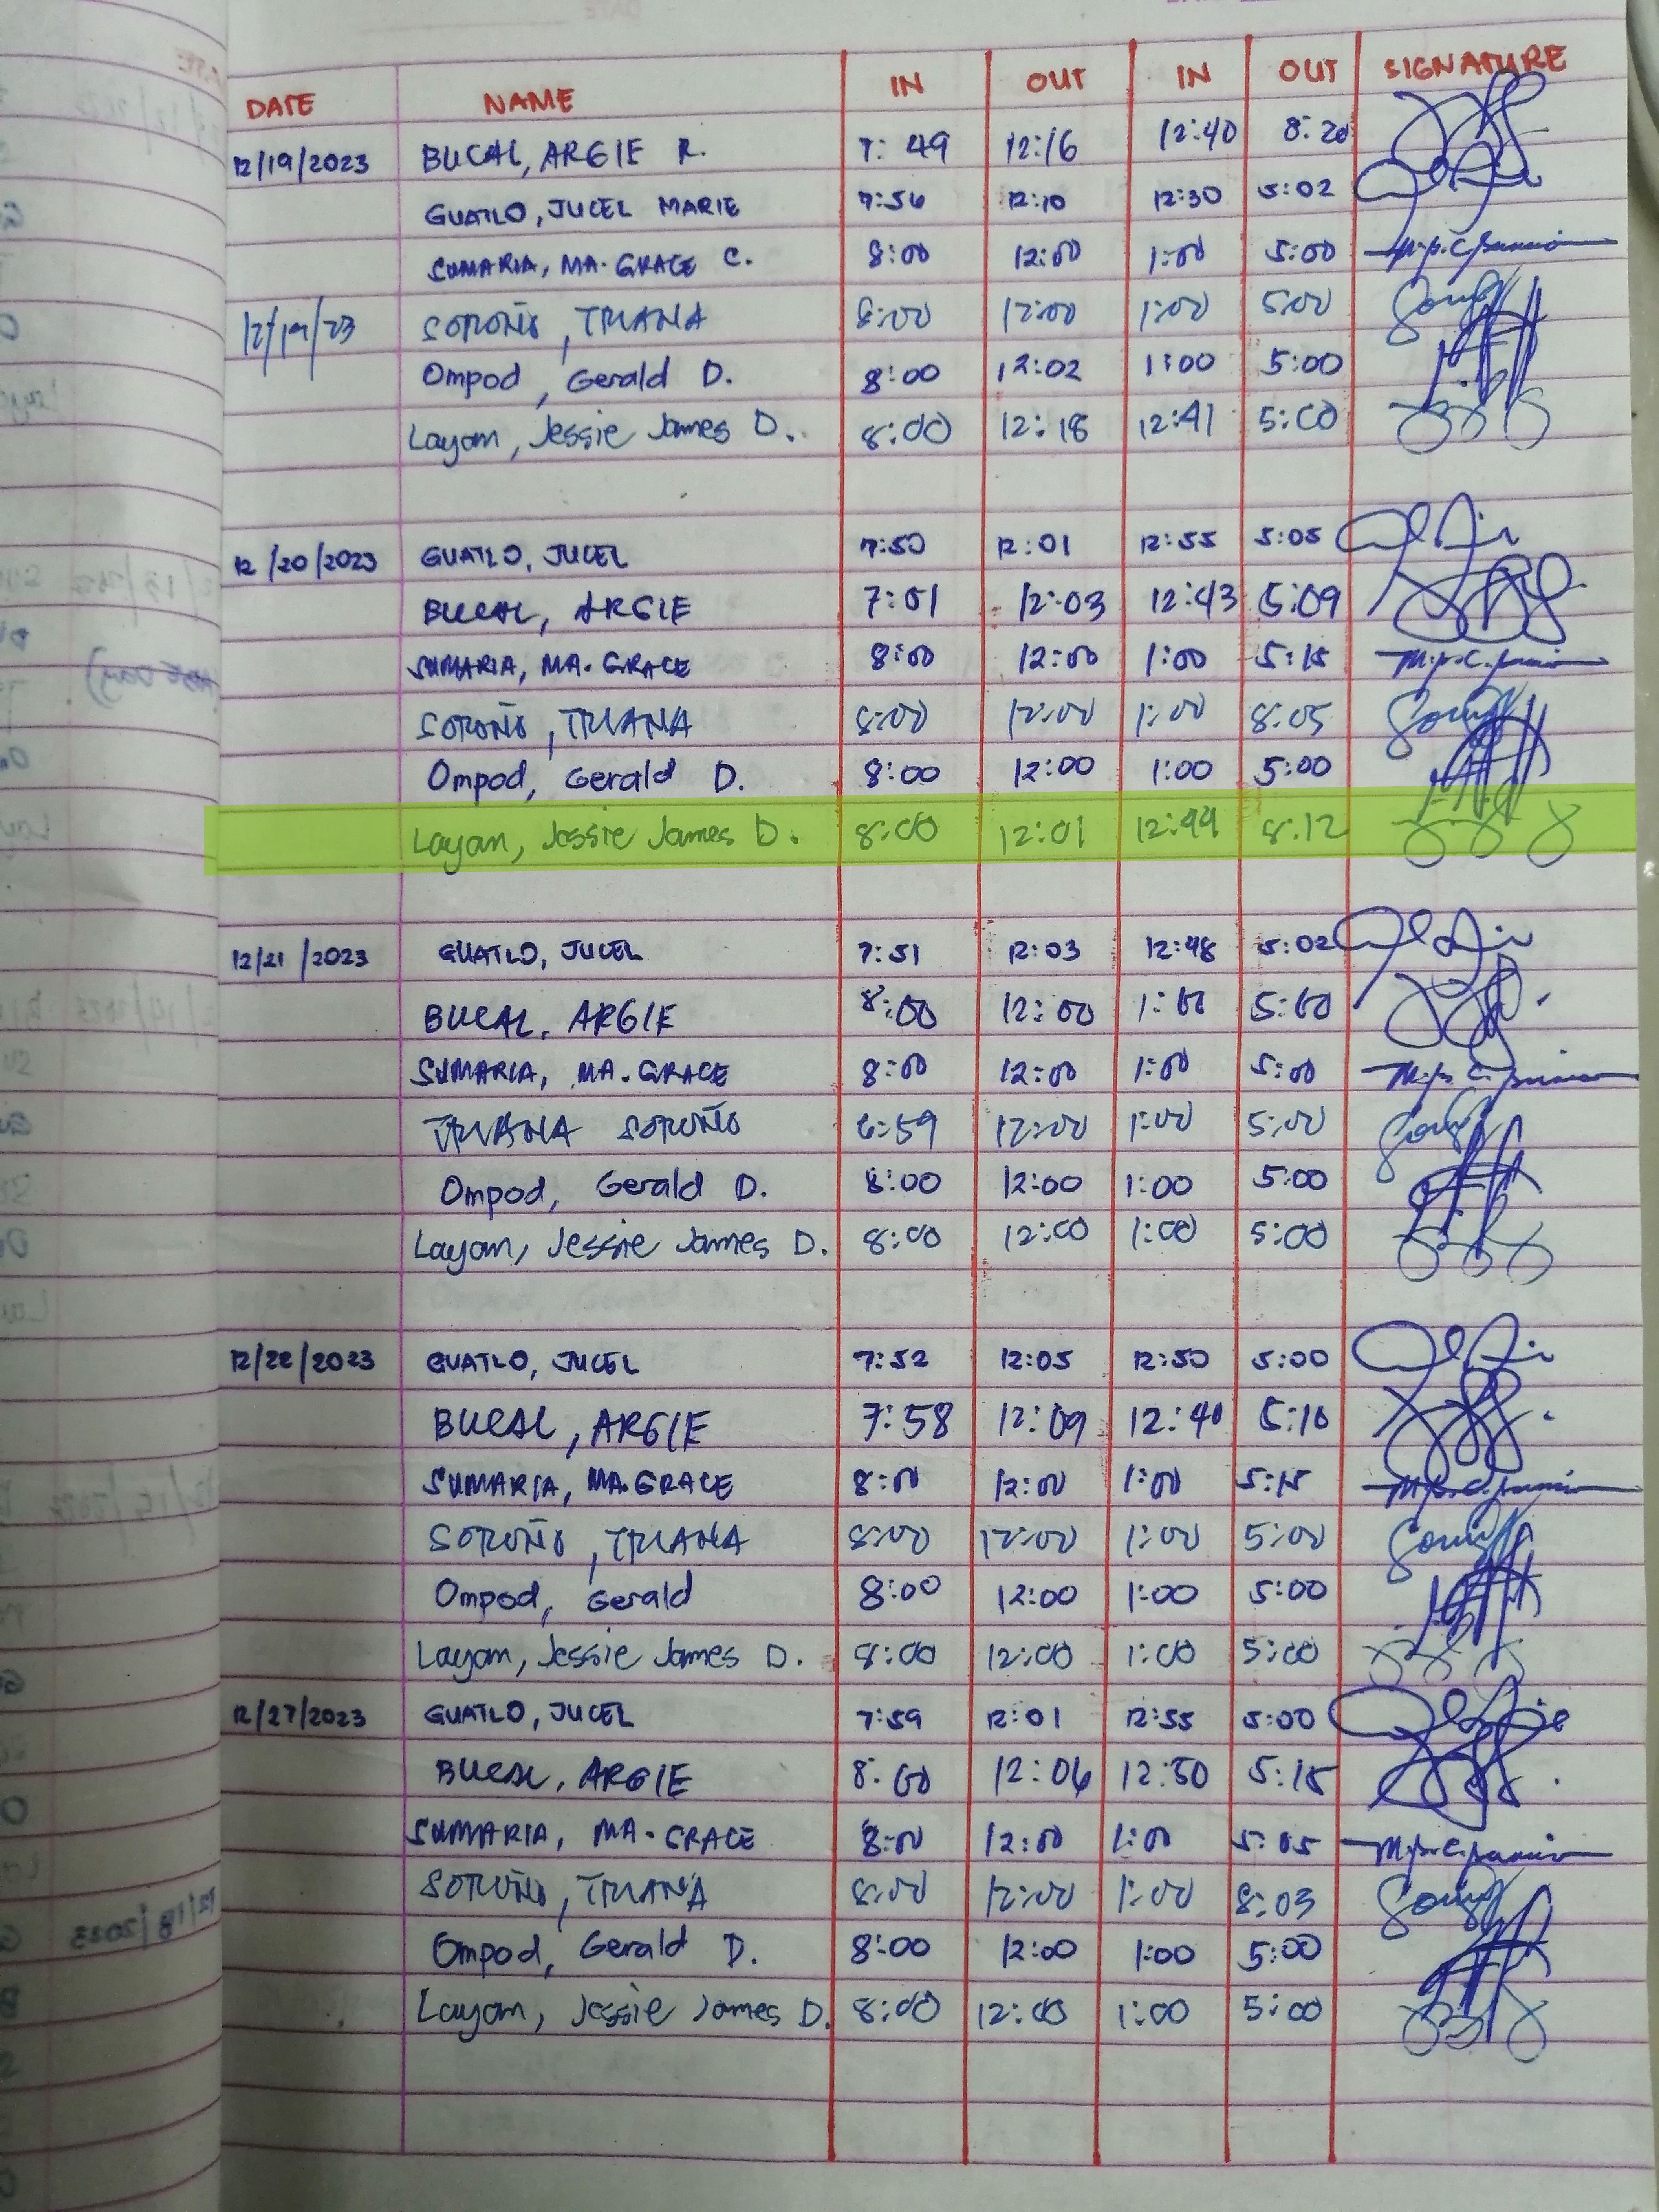 DATE NAME IN OUT IN OUT SIGNATURE
12/19/2023 BUCAL, ARGIE R. 7:49 12:16 12:40 8:20
GUATLO, JUCEL MARIE 7:56 12:10 12:30 5:02
SUMARIA, MA. GRACE C. 8:00 12:00 1:00 5:00
12/19/23 SOROÑO, TRIANA 8:00 12:00 1:00 5:00
Ompod, Gerald D. 8:00 12:02 1:00 5:00
Layam, Jessie James D. 8:00 12:18 12:41 5:00
12/20/2023 GUATLO, JUCEL 7:50 12:01 12:55 5:05
BUCAL, ARGIE 7:51 12:03 12:43 5:09
SUMARIA, MA. GRACE 8:00 12:00 1:00 5:15
SOROÑO, TRIANA 8:00 12:00 1:00 8:05
Ompod, Gerald D. 8:00 12:00 1:00 5:00
Layam, Jessie James D. 8:00 12:01 12:44 8:12
12/21/2023 GUATLO, JUCEL 7:51 12:03 12:48 5:02
BUCAL, ARGIE 8:00 12:00 1:00 5:00
SUMARIA, MA. GRACE 8:00 12:00 1:00 5:00
TRIANA SOROÑO 12:00 1:00 5:00
Ompod, Gerald D. 8:00 12:00 1:00 5:00
Layam, Jessie James D. 8:00 12:00 1:00 5:00
12/22/2023 GUATLO, JUCEL 7:52 12:05 12:50 5:00
BUCAL, ARGIE 7:58 12:09 12:40 5:10
SUMARIA, MA. GRACE 8:00 12:00 1:00 5:15
SOROÑO, TRIANA 8:00 12:00 1:00 5:00
Ompod, Gerald 8:00 12:00 1:00 5:00
Layam, Jessie James D. 8:00 12:00 1:00 5:00
12/27/2023 GUATLO, JUCEL 7:59 12:01 12:55 5:00
BUCAL, ARGIE 8:00 12:06 12:50 5:15
SUMARIA, MA. GRACE 8:00 12:00 1:00 5:05
SOROÑO, TRIANA 8:00 12:00 1:00 8:03
Ompod, Gerald D. 8:00 12:00 1:00 5:00
Layam, Jessie James D. 8:00 12:00 1:00 5:00